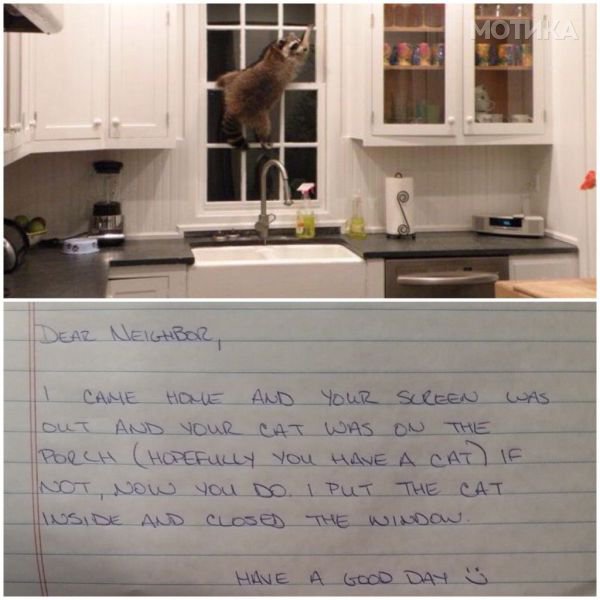 МОТИКА
DEAR NEIGHBOR,
I CAME HOME AND YOUR SCREEN WAS
OUT AND YOUR CAT WAS ON THE
PORCH (HOPEFULLY YOU HAVE A CAT) IF
NOT, NOW YOU DO. I PUT THE CAT
INSIDE AND CLOSED THE WINDOW.
HAVE A GOOD DAY